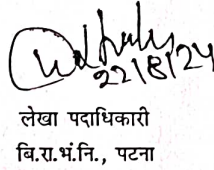 22/8/24
लेखा पदाधिकारी
बि.रा.भं.नि., पटना